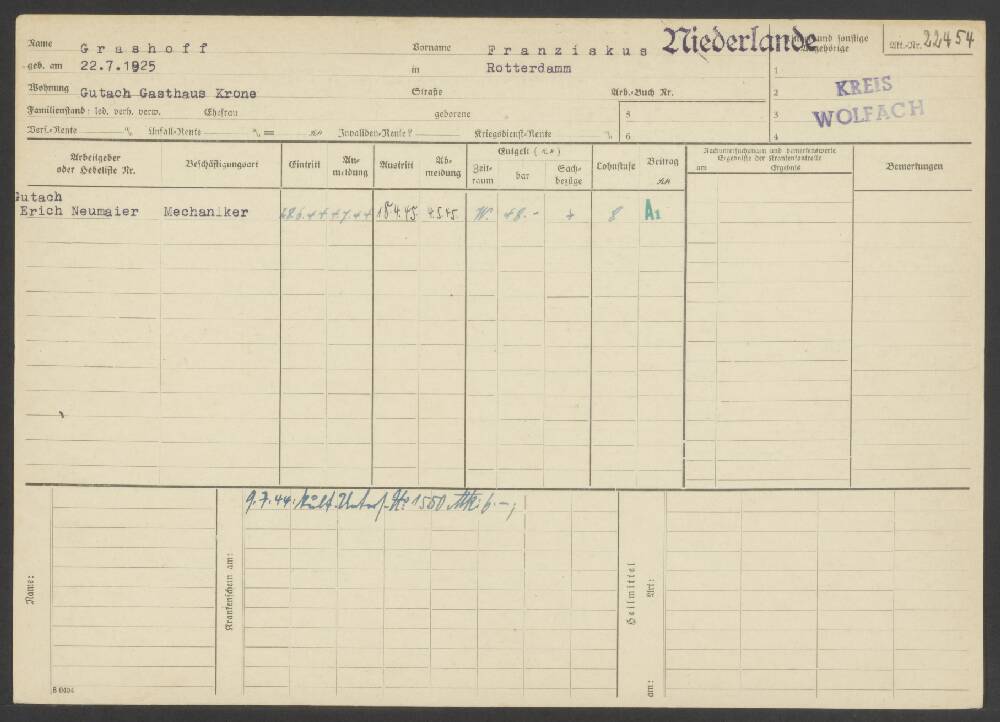 Name Grashoff Vorname Franziskus Niederlande und sonstige Angehörige Mt.-Nr. 22454
geb. am 22.7.1925 in Rotterdamm 1
Wohnung Gutach Gasthaus Krone Straße Arb.-Buch Nr. 2 KREIS
Familienstand: led. verh. verw. Ehefrau geborene 5 3 WOLFACH
Vers.-Rente % Unfall-Rente % = RM Invaliden-Rente? Kriegsdienst-Rente % 6 4
Arbeitgeber oder Hebeliste Nr. Beschäftigungsart Eintritt An-meldung Austritt Ab-meldung Entgelt (RM) Zeit-raum bar Sach-bezüge Lohnstufe Beitrag RM Nachuntersuchungen und bemerkenswerte Ergebnisse der Krankenkontrolle am Ergebnis Bemerkungen
Gutach
Erich Neumaier Mechaniker 18.4.45 4.5.45 W. 48.- + 8 A1
9.7.44. 1550 6.-;
Name:
Krankenschein am:
Heilmittel
Art:
am:
B 0404